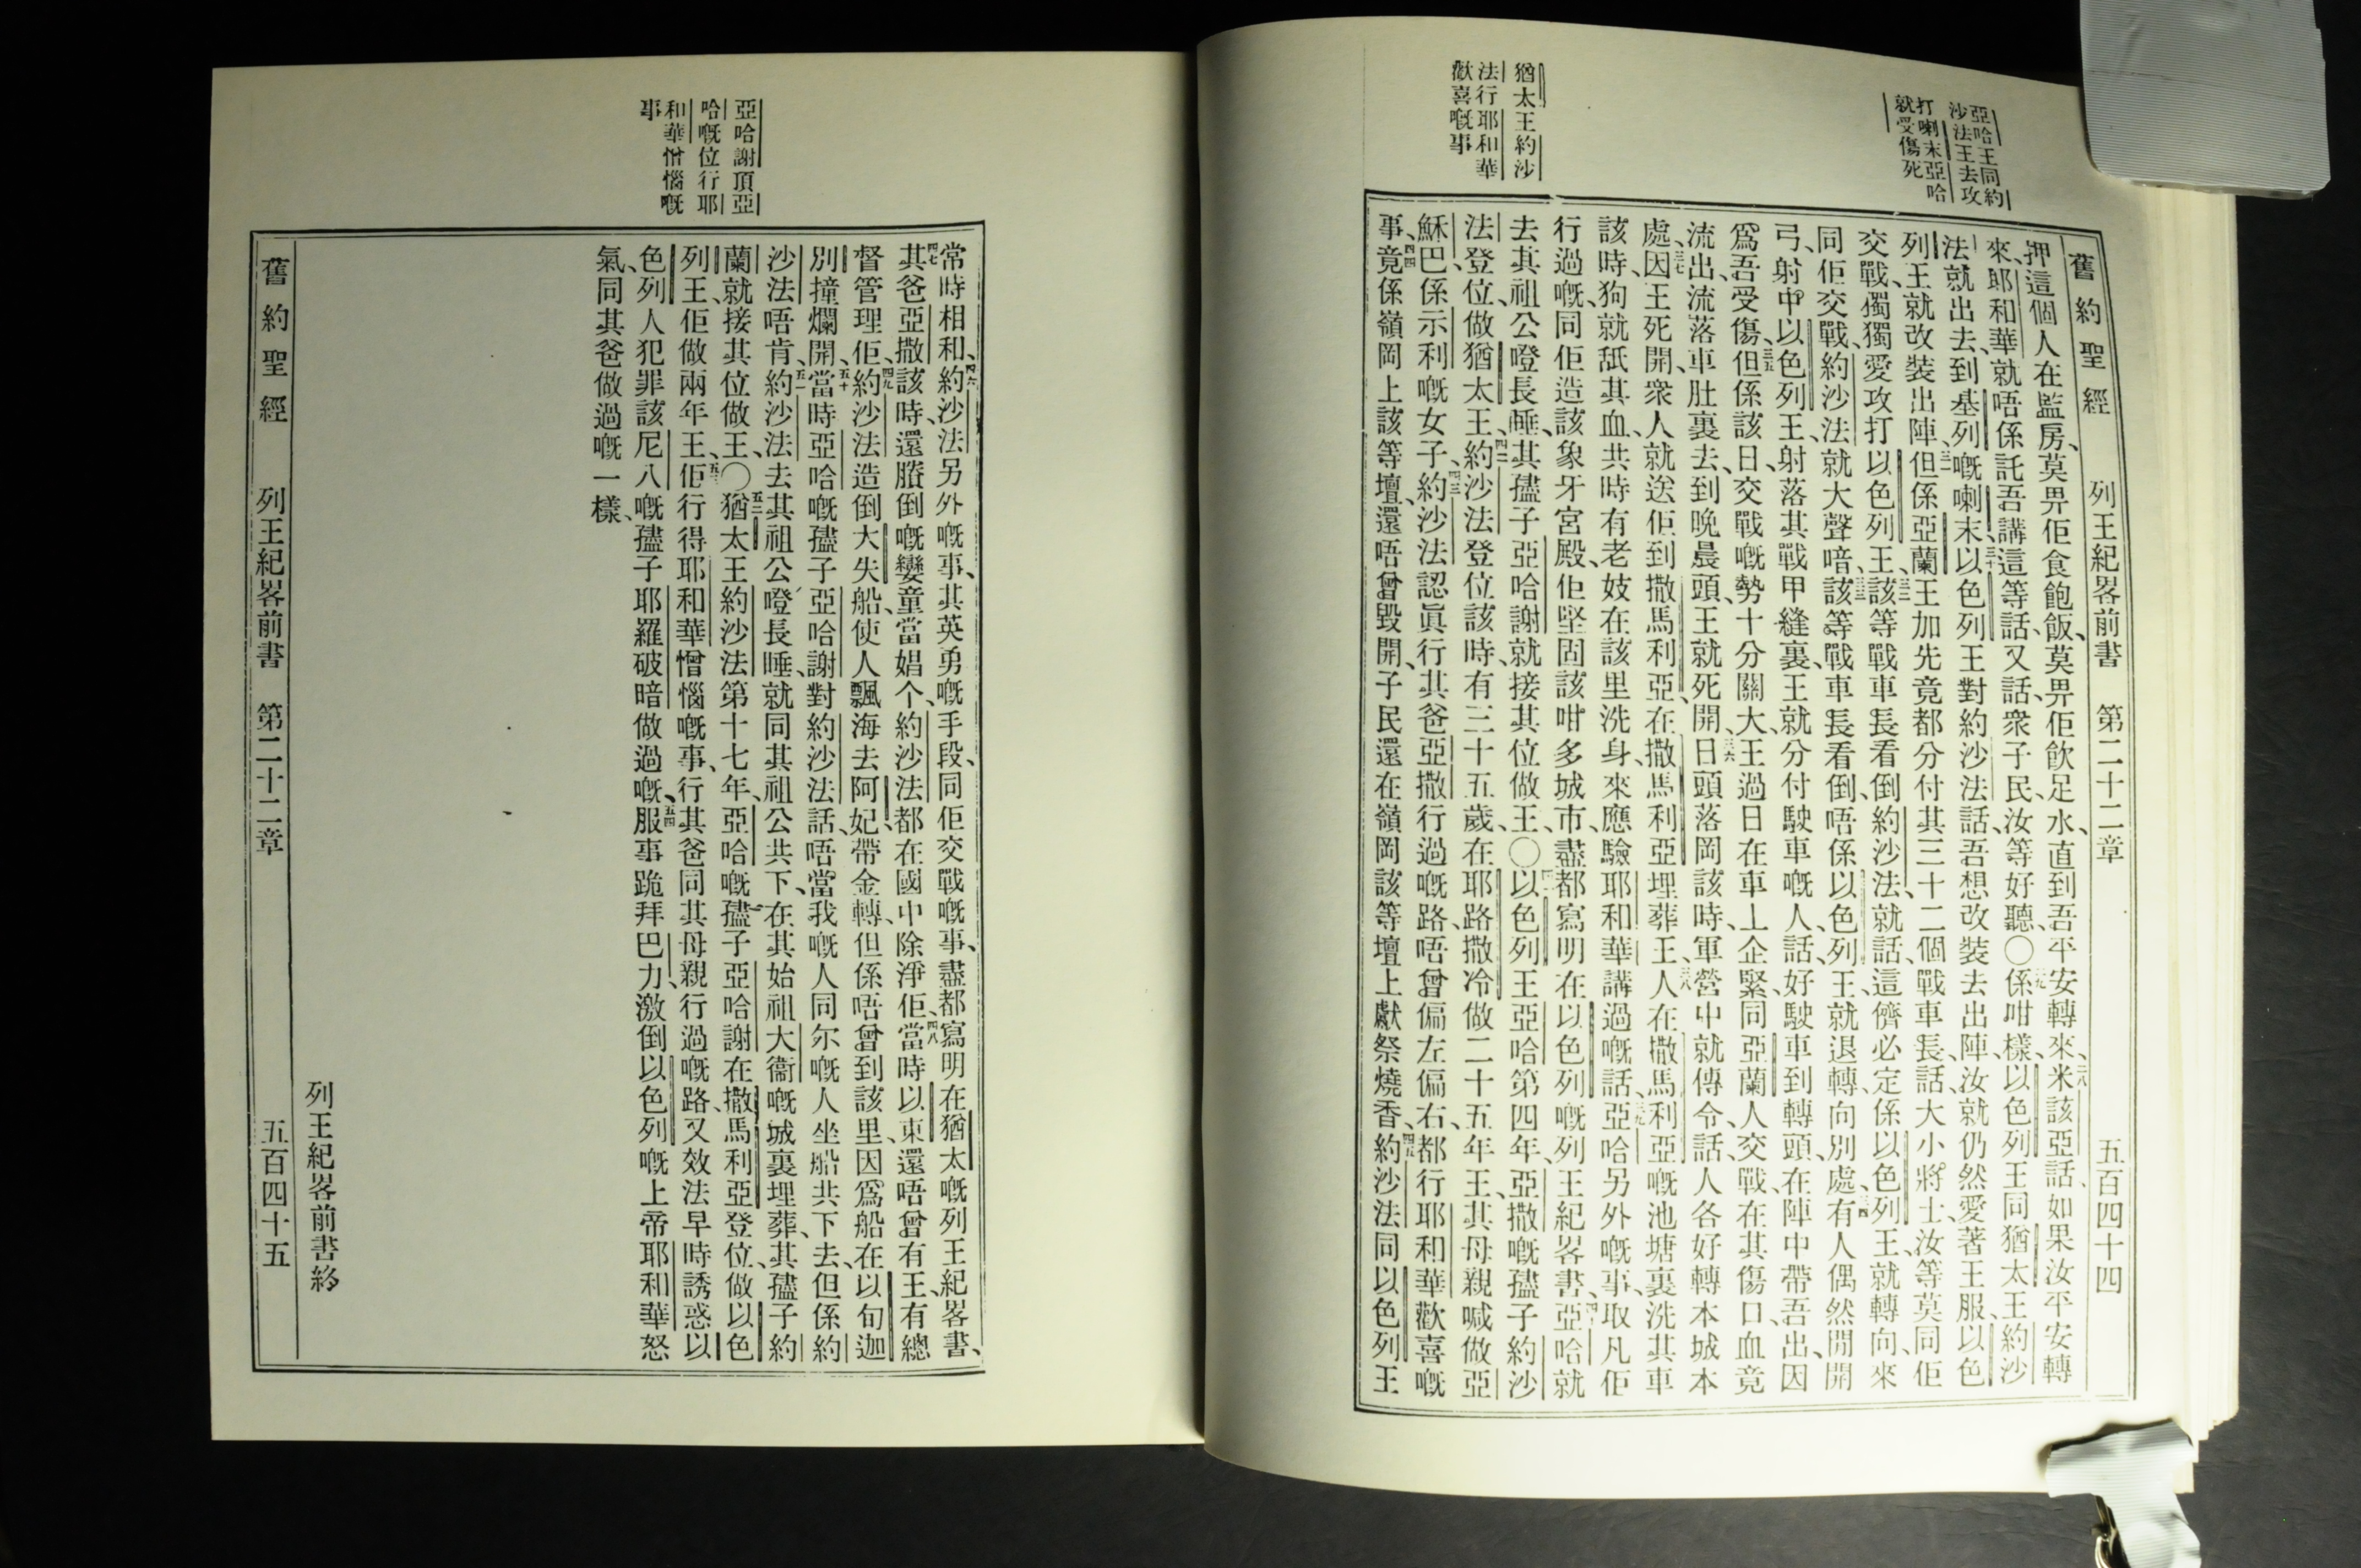 舊約聖經　列王紀畧前書　第二十二章　五百四十四
亞哈王同約
沙法王去攻
打喇末亞哈
就受傷死
猶太王約沙
法行耶和華
歡喜嘅事
押這個人在監房、莫畀佢食飽飯、莫畀佢飮足水、直到吾平安轉來、二八米該亞話、如果汝平安轉
來、耶和華就唔係託吾講這等話、又話、衆子民、汝等好聽、〇二九係咁樣、以色列王同猶太王約沙
法就出去、到基列嘅喇末、三十以色列王對約沙法話、吾想改裝去出陣、汝就仍然愛著王服、以色
列王就改裝出陣、三一但係亞蘭王加先竟都分付其三十二個戰車長、話、大小將士、汝等莫同佢
交戰、獨獨愛攻打以色列王、三二該等戰車長看倒約沙法、就話、這儕必定係以色列王、就轉向來
同佢交戰、約沙法就大聲喑、三三該等戰車長看倒唔係以色列王、就退轉向別處、三四有人偶然開開
弓、射中以色列王、射落其戰甲縫裏、王就分付駛車嘅人、話、好駛車到轉頭、在陣中帶吾出、因
爲吾受傷、三五但係該日、交戰嘅勢十分關大、王過日在車上企緊、同亞蘭人交戰、在其傷口、血竟
流出、流落車肚裏去、到晚晨頭、王就死開、三六日頭落岡該時、軍營中就傳令、話、人各好轉本城本
處、三七因王死開、衆人就送佢到撒馬利亞、在撒馬利亞埋葬王、三八人在撒馬利亞嘅池塘裏洗其車
該時、狗就舐其血、共時有老妓在該里洗身、來應驗耶和華講過嘅話、三九亞哈另外嘅事、取凡佢
行過嘅、同佢造該象牙宮殿、佢堅固該咁多城市、盡都寫明在以色列嘅列王紀畧書、四十亞哈就
去其祖公嶝長睡、其孻子亞哈謝就接其位做王、〇四一以色列王亞哈第四年、亞撒嘅孻子約沙
法登位、做猶太王、四二約沙法登位該時、有三十五歲、在耶路撒冷做二十五年王、其母親喊做亞
穌巴、係示利嘅女子、四三約沙法認眞行其爸亞撒行過嘅路、唔曾偏左偏右、都行耶和華歡喜嘅
事、四四竟係嶺岡上該等壇、還唔曾毀開、子民還在嶺岡該等壇上獻祭燒香、四五約沙法同以色列王
亞哈謝頂亞
哈嘅位行耶
和華憎惱嘅
事
常時相和、四六約沙法另外嘅事、其英勇嘅手段、同佢交戰嘅事、盡都寫明在猶太嘅列王紀畧書、
四七其爸亞撒該時、還賸倒嘅孌童當娼个、約沙法都在國中除淨佢、四八當時以東還唔曾有王、有總
督管理佢、四九約沙法造倒大失船、使人飄海去阿妃帶金轉、但係唔曾到該里、因爲船在以旬迦
別撞爛開、五十當時亞哈嘅孻子亞哈謝對約沙法話、唔當我嘅人同尔嘅人坐船共下去、但係約
沙法唔肯、五一約沙法去其祖公嶝長睡、就同其祖公共下、在其始祖大衞嘅城裏埋葬、其孻子約
蘭就接其位做王、〇五二猶太王約沙法第十七年、亞哈嘅孻子亞哈謝在撒馬利亞登位、做以色
列王、佢做兩年王、五三佢行得耶和華憎惱嘅事、行其爸同其母親行過嘅路、又效法早時誘惑以
色列人犯罪該尼八嘅孻子耶羅破暗做過嘅、五四服事跪拜巴力、激倒以色列嘅上帝耶和華怒
氣、同其爸做過嘅一樣、
列王紀畧前書終
舊約聖經　列王紀畧前書　第二十二章　五百四十五